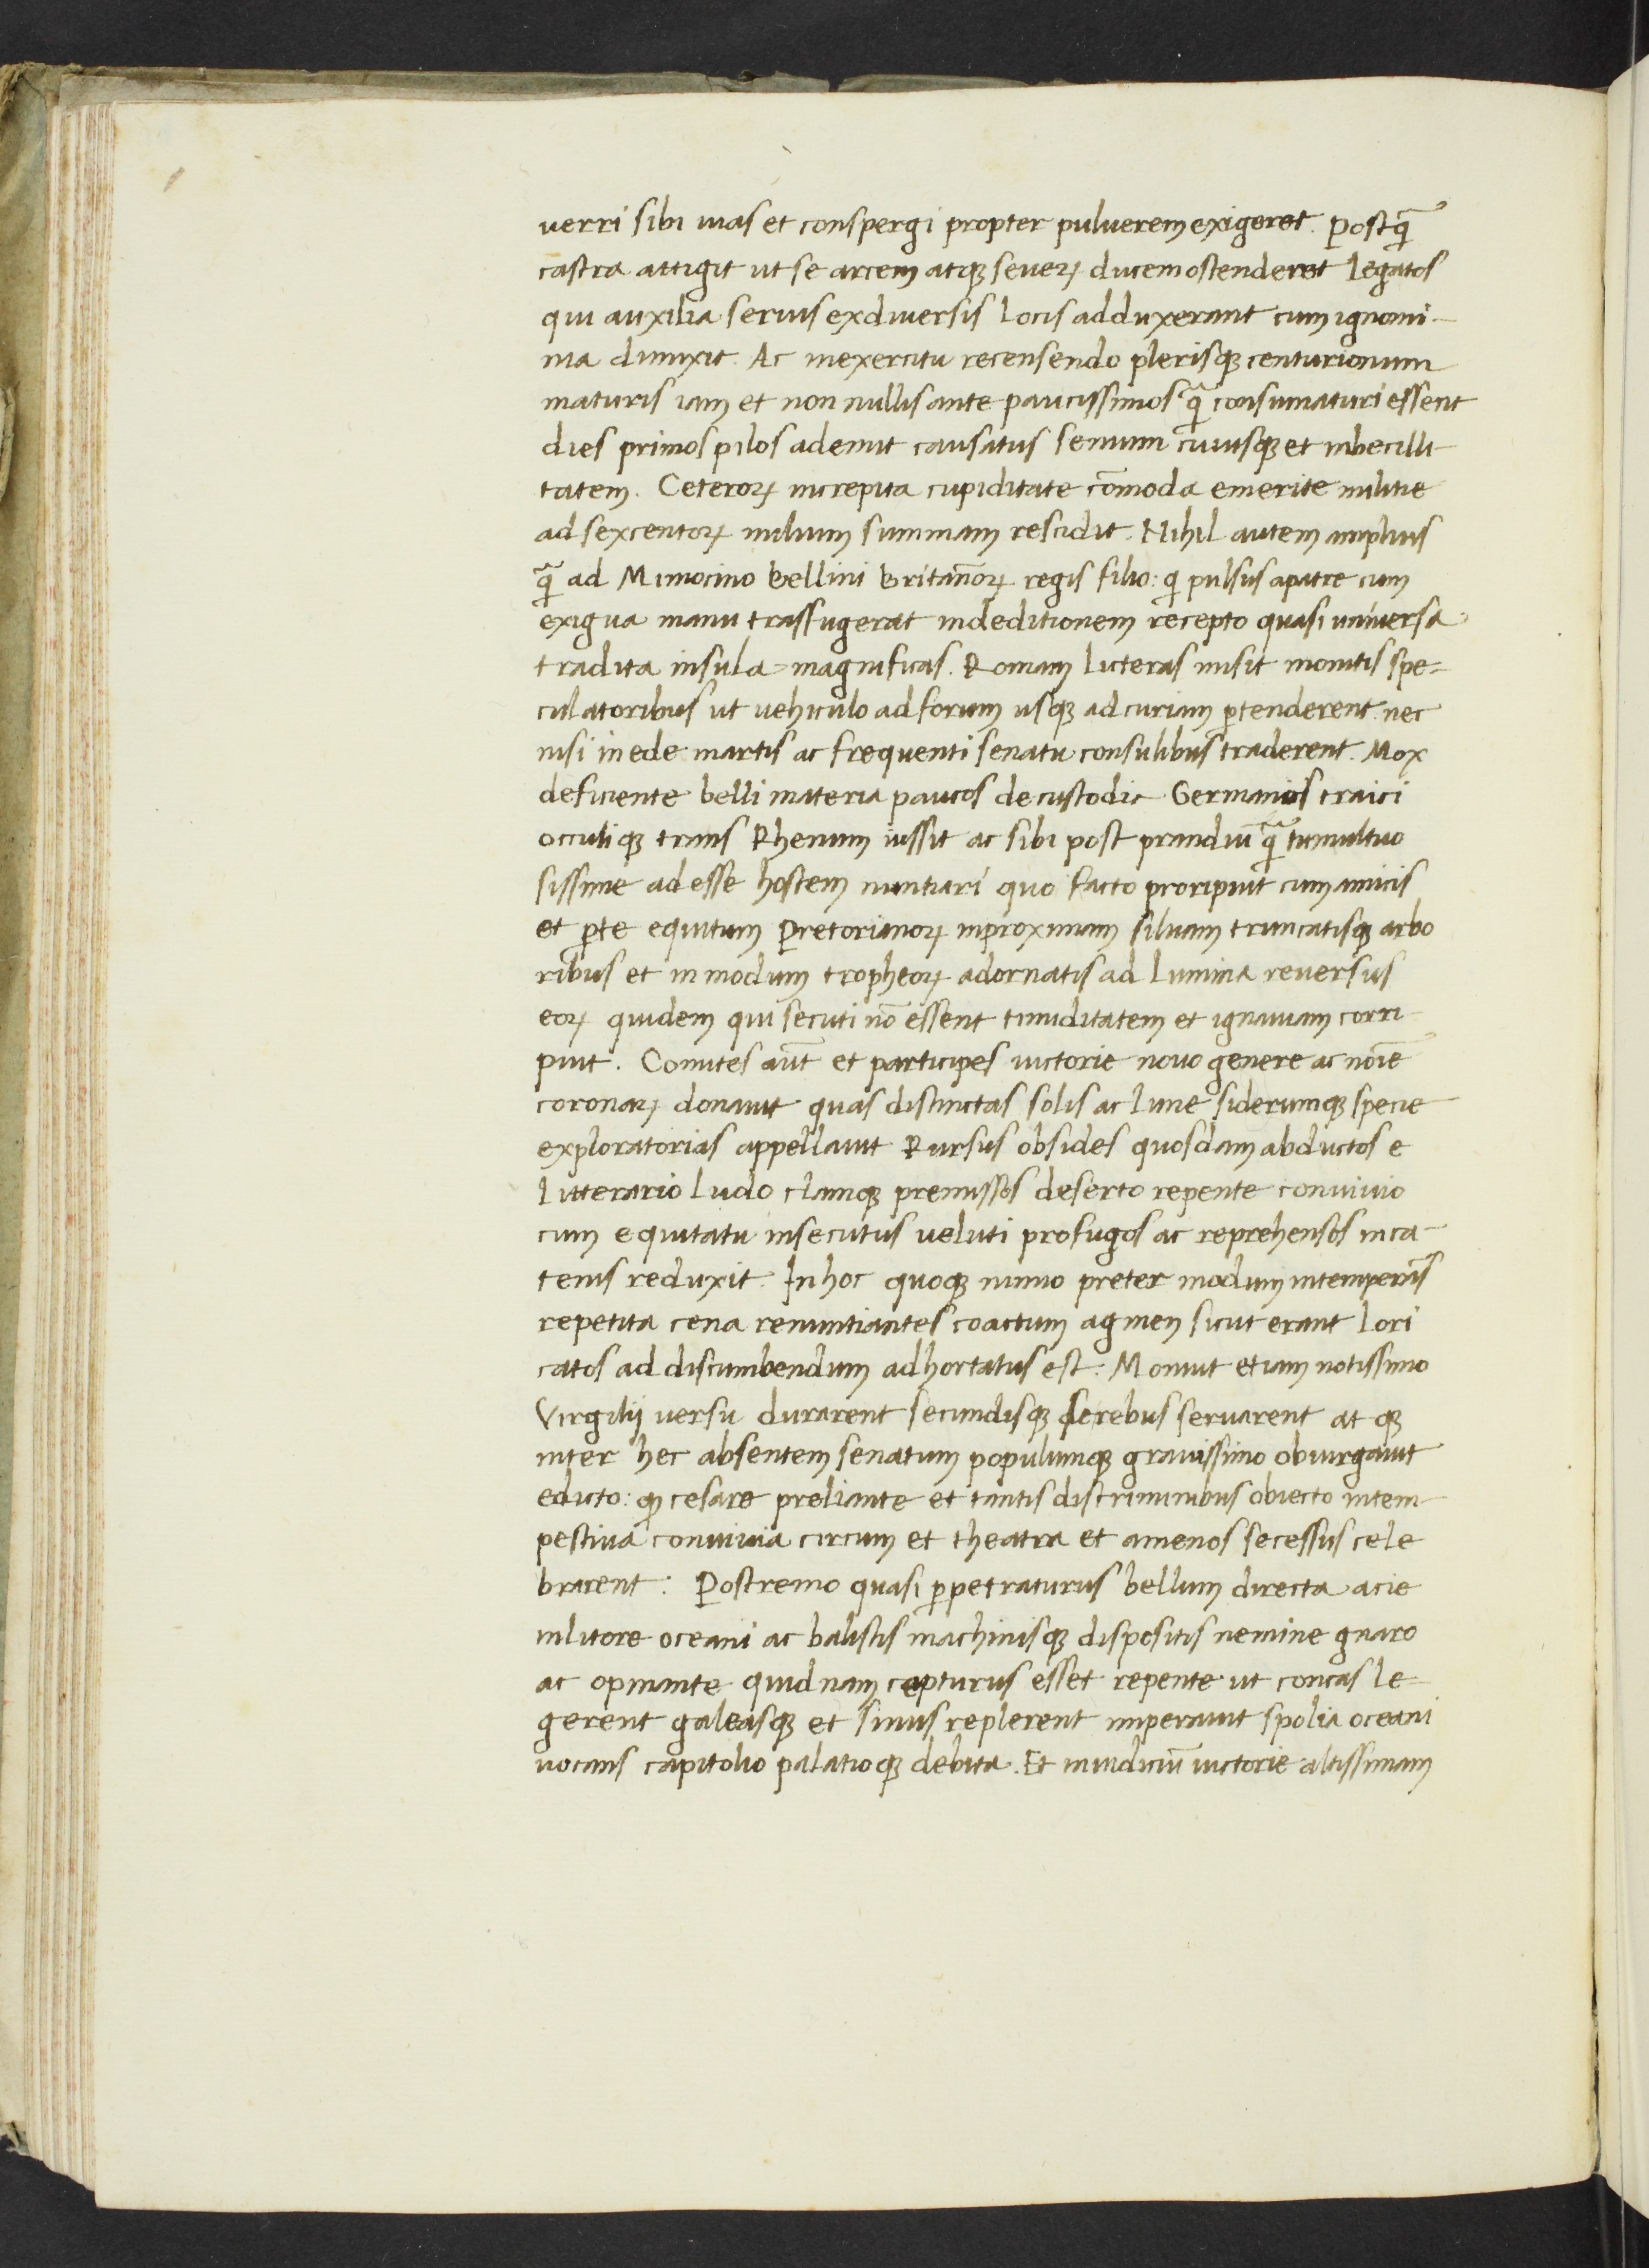 uerri sibi uias et conspergi propter puluerem exigeret. Postq̃
castra attigit ut se arcem atqꝫ seueꝝ ducem ostenderet legatos
qui auxilia serius ex diuersis locis adduxerant cum ignomi-
nia dimixit. Ac in exercitu recensendo plerisqꝫ centurionum
maturis iam et non nullis ante paucissimos q̃ consumaturi essent
dies primos pilos ademit causatus senium cuiusqꝫ et inbecilli-
tatem. Ceteroꝝ increpita cupiditate cõmoda emerite militie
ad sexcentoꝝ milium summam rescidit. Nihil autem amplius
q̃ ad Mimocino bellini britañoꝝ regis filio: qi pulsus apatre cum
exigua manu trassugerat indeditionem recepto quasi uniuersa
tradita insula magnificas. Romam licteras misit monitis spe=
culatoribus ut uehiculo ad forum usqꝫ ad curiam ꝑtenderent. nec
nisi in ede martis ac frequenti senatu consulibus traderent. Mox
deficiente belli materia paucos de custodia Germanos traici
occuliqꝫ trans Rhenum iussit ac sibi post prandiũ q̃ tumultuo
sissime ad esse hostem nuntiari quo facto proripuit cum amicis
et ꝑte equitum Pretorianoꝝ inproximam siluam truncatisqꝫ arbo
ribus et in modum tropheoꝝ adornatis ad lumina reuersus
eoꝝ quidem qui secuti nõ essent timiditatem et ignauiam corri-
puit. Comites aũt et participes uictorie nouo genere ac noĩe
coronaꝝ donauit quas distinctas solis ac lune siderumqꝫ specie
exploratorias appellauit Rursus obsides quosdam abductos e
litterario ludo clamqꝫ premissos deserto repente conuiuio
cum equitatu insecutus ueluti profugos ac reprehensos in ca-
tenis reduxit. In hoc quoqꝫ mimo preter modum intemperãs
repetita cena renuntiantes coactum agmen sicut erant lori
catos ad discumbendum adhortatus est: Monuit etiam notissimo
Virgilij uersu durarent secundisqꝫ se rebus seruarent at qꝫ
inter hec absentem senatum populumqꝫ grauissimo obiurgauit
edicto: qꝫ cesare preliante et tantis discriminibus obiecto intem-
pestiua conuiuia circum et theatra et amenos secessus cele
brarent: Postremo quasi ꝑpetraturus bellum directa acie
inlitore oceani ac balistis machinisqꝫ dispositis nemine gnaro
ac opinante quid nam cepturus esset repente ut concas le=
gerent galeasqꝫ et sinus replerent imperauit spolia oceani
uocans capitolio palatioqꝫ debita. Et inindiciũ uictorie altissimam